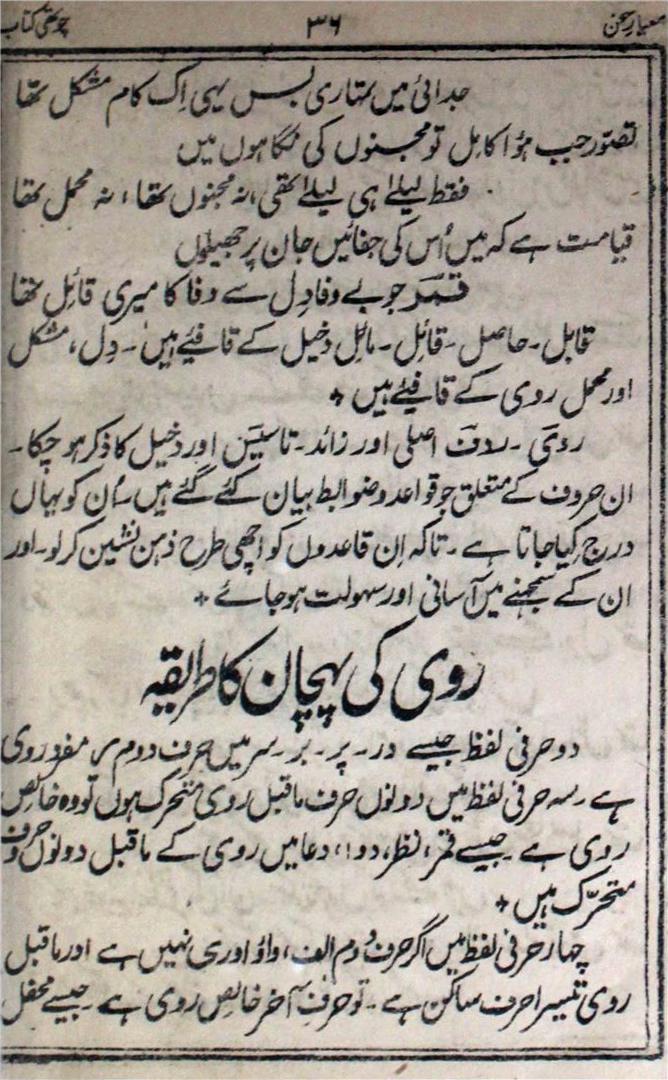 معیارِ سخن ۳۶ چوتھی کتاب
جدائی میں تمہاری بس یہی اِک کام مشکل تھا
تصوّر جب ہؤا کامِل تو مجنوں کی نگاہوں میں
فقط لیلےٰ ہی لیلےٰ تھی، نہ مجنوں تھا، نہ محمل تھا
قیامت ہے کہ میں اُس کی جفائیں جان پر جھیلوں
قمؔر جو بے وفا دِل سے وفا کا میری قائِل تھا
قابل ۔ حاصل ۔ قائِل ۔ مائِل دخیل کے قافیئے ہیں ۔ دِل، مشکل
اور محمل روی کے قافیئے ہیں +
روی ۔ ردف اصلی اور زائد ۔ تاسیس اور دخیل کا ذکر ہو چکا ۔
ان حروف کے متعلق جو قواعد و ضوابط بیان کئے گئے ہیں ۔ اُن کو یہاں
درج کیا جاتا ہے ۔ تاکہ اِن قاعدوں کو اچھی طرح ذہن نشین کر لو ۔ اور
ان کے سمجھنے میں آسانی اور سہولت ہو جائے +
روی کی پہچان کا طریقہ
دو حرفی لفظ جیسے در ۔ پر ۔ بر ۔ سر میں حرف دوم ر مفرد روی
ہے ۔ سہ حرفی لفظ میں دونوں حرف ماقبل روی متحرک ہوں تو وہ خالِص
روی ہے ۔ جیسے قمر، نظر، دوا، دعا میں روی کے ماقبل دونوں حروف
متحرّک ہیں +
چہار حرفی لفظ میں اگر حرف دُوم الف، واؤ اور ی نہیں ہے اور ماقبل
روی تیسرا حرف ساکن ہے ۔ تو حرفِ آخر خالِص روی ہے ۔ جیسے محفل